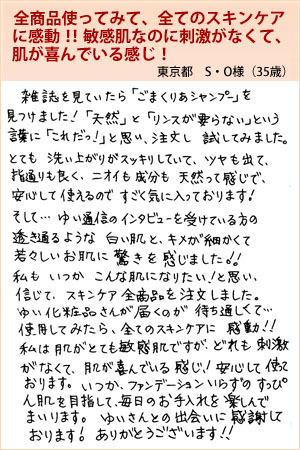 全商品使ってみて、全てのスキンケア
に感動!!敏感肌なのに刺激がなくて、
肌が喜んでいる感じ！
東京都　S・O様（35歳）
雑誌を見ていたら「ごまくりあシャンプー」を
見つけました！「天然」と「リンスが要らない」という
言葉に「これだっ！」と思い、注文し 試してみました。
とても 洗い上がりがスッキリしていて、ツヤも出て、
指通りも良く、ニオイも成分も 天然って感じで、
安心して使えるので すごく気に入っております！
そして… ゆい通信のインタビューを受けている方の
透き通るような 白い肌と、キメが細かくて
若々しいお肌に 驚きを感じました!!
私も いつか こんな肌になりたい！と思い、
信じて、スキンケア 全商品を注文しました。
ゆい化粧品さんが届くのが 待ち通しくて…
使用してみたら、全てのスキンケアに 感動!!
私は肌がとても敏感肌ですが、どれも 刺激
がなくて、肌が喜んでいる 感じ！安心して使って
おります。いつか、ファンデーションいらずの すっぴ
ん肌を目指して、毎日のお手入れを 楽しんで
まいります。 ゆいさんとの出会いに 感謝して
おります！ありがとうございます!!